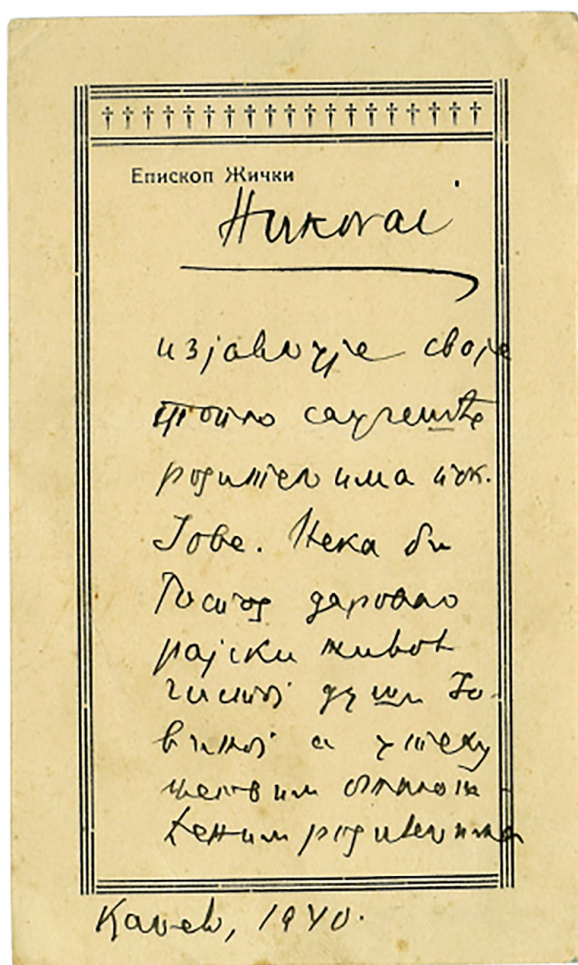 Епископ Жички
Николај
изјављује своје
топло саучешће
родитељима пок.
Јове. Нека би
Господ даровао
рајски живот
чистој души Јо-
виној а утеху
његовим ожалош-
ћеним родитељима
1940.